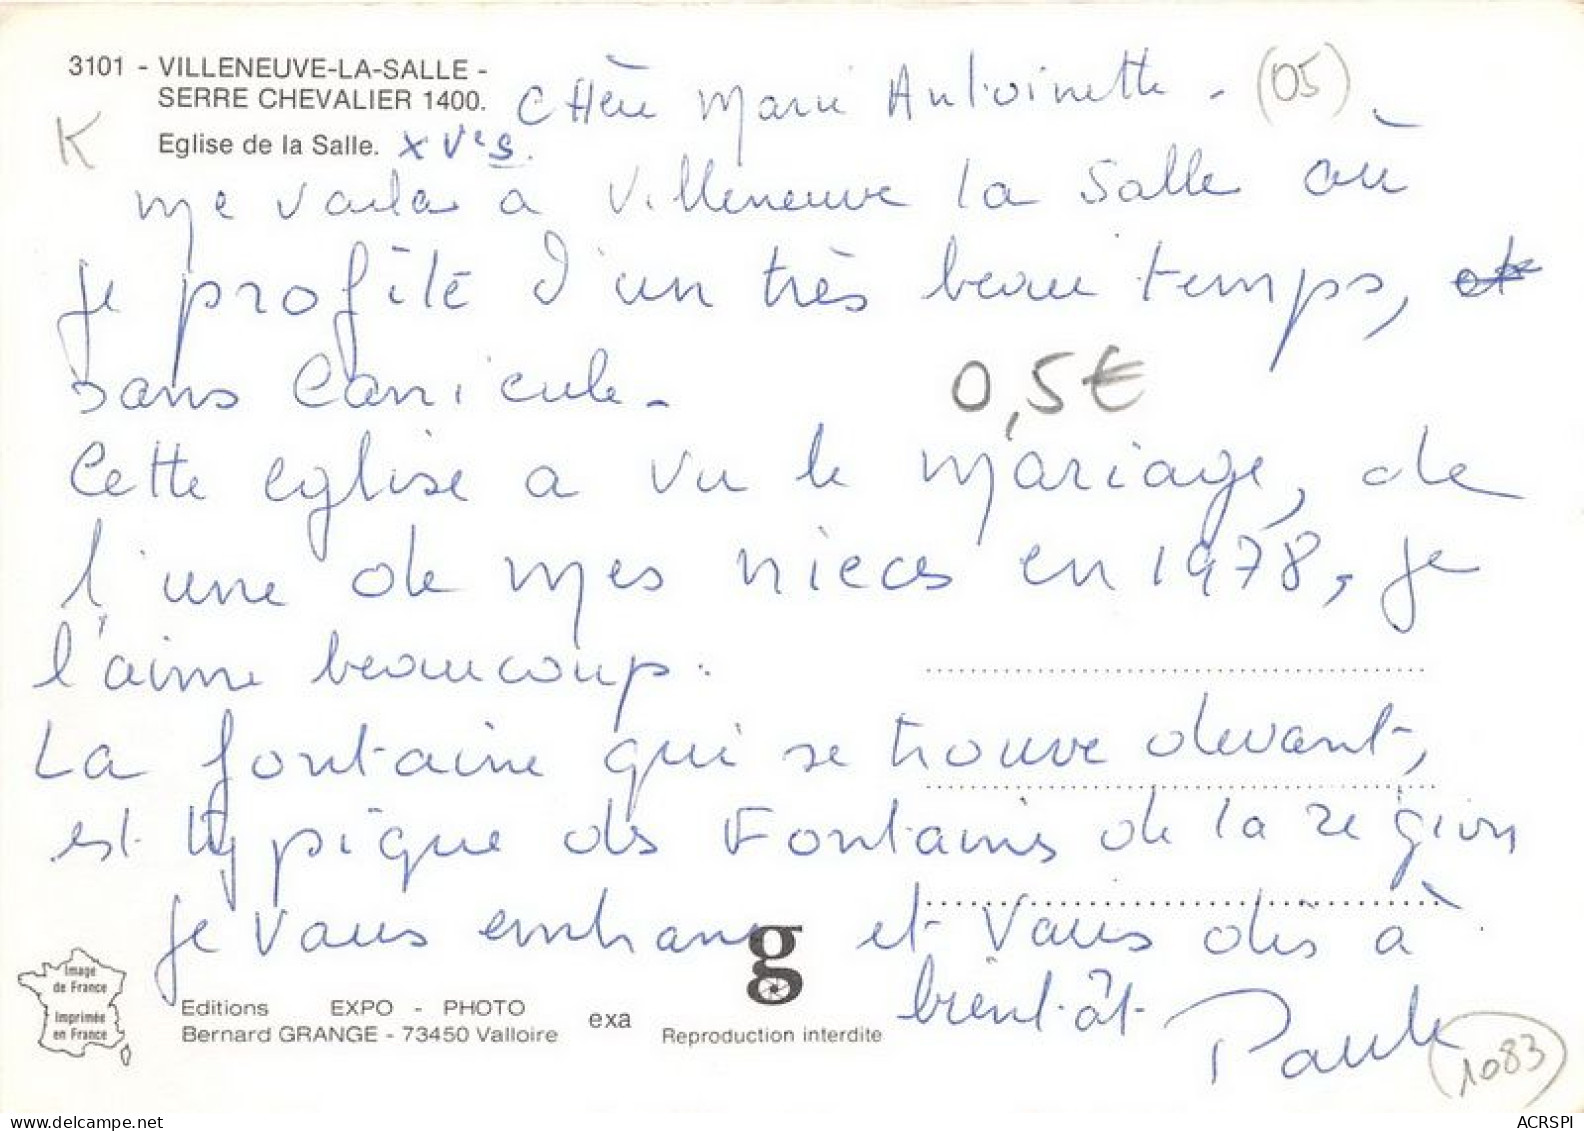 3101 - VILLENEUVE-LA-SALLE -
SERRE CHEVALIER 1400.
Eglise de la Salle. XVe s.
K
CHère Marie Antoinette - (05)
me voila à Villeneuve la Salle où
je profite d'un très beau temps, et
sans canicule -
0,5€
Cette eglise a vu le mariage, de
l'une de mes nieces en 1978, je
l'aime beaucoup.
La fontaine qui se trouve devant,
est typique des Fontaines de la région
je vous embrasse et vous dis à
bientôt
Paule
(1083)
Image
de France
Imprimée
en France
Editions EXPO - PHOTO
Bernard GRANGE - 73450 Valloire
exa
g
Reproduction interdite
delcampe.net
ACRSPI